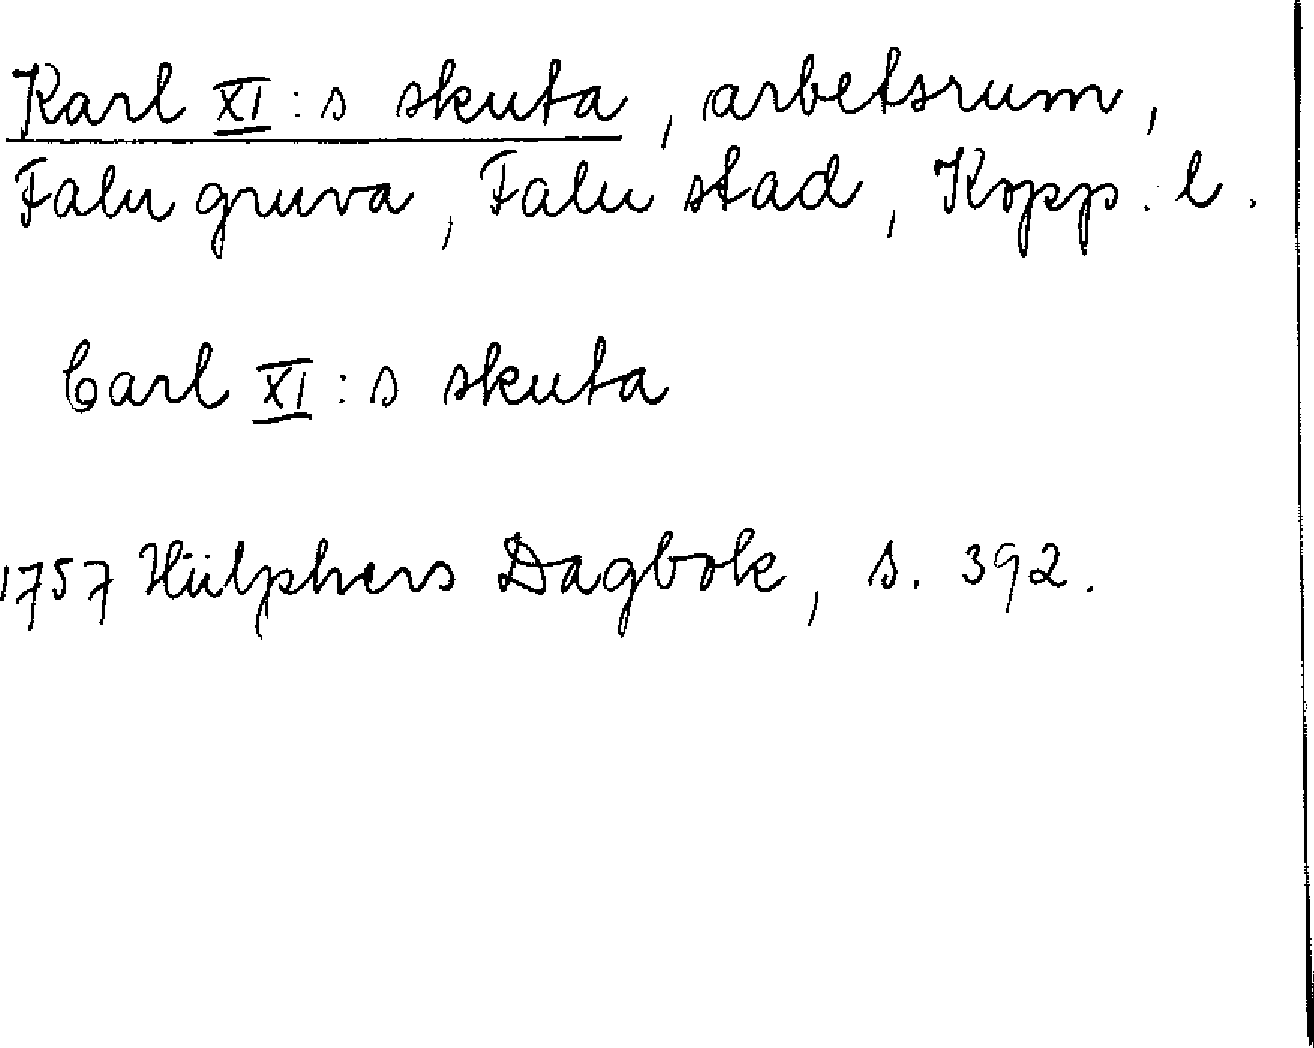 Karl XI:s skuta, arbetsrum,
Falu gruva, Falu stad, Kopp. l.
Carl XI:s skuta
1757 Hülphers Dagbok, s. 392.